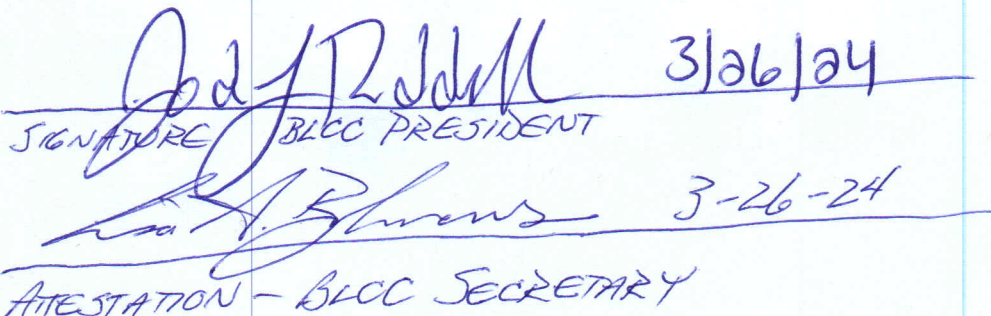 Jody Riddell 3/26/24
SIGNATURE BLCC PRESIDENT
Lisa A. 3-26-24
ATTESTATION - BLCC SECRETARY